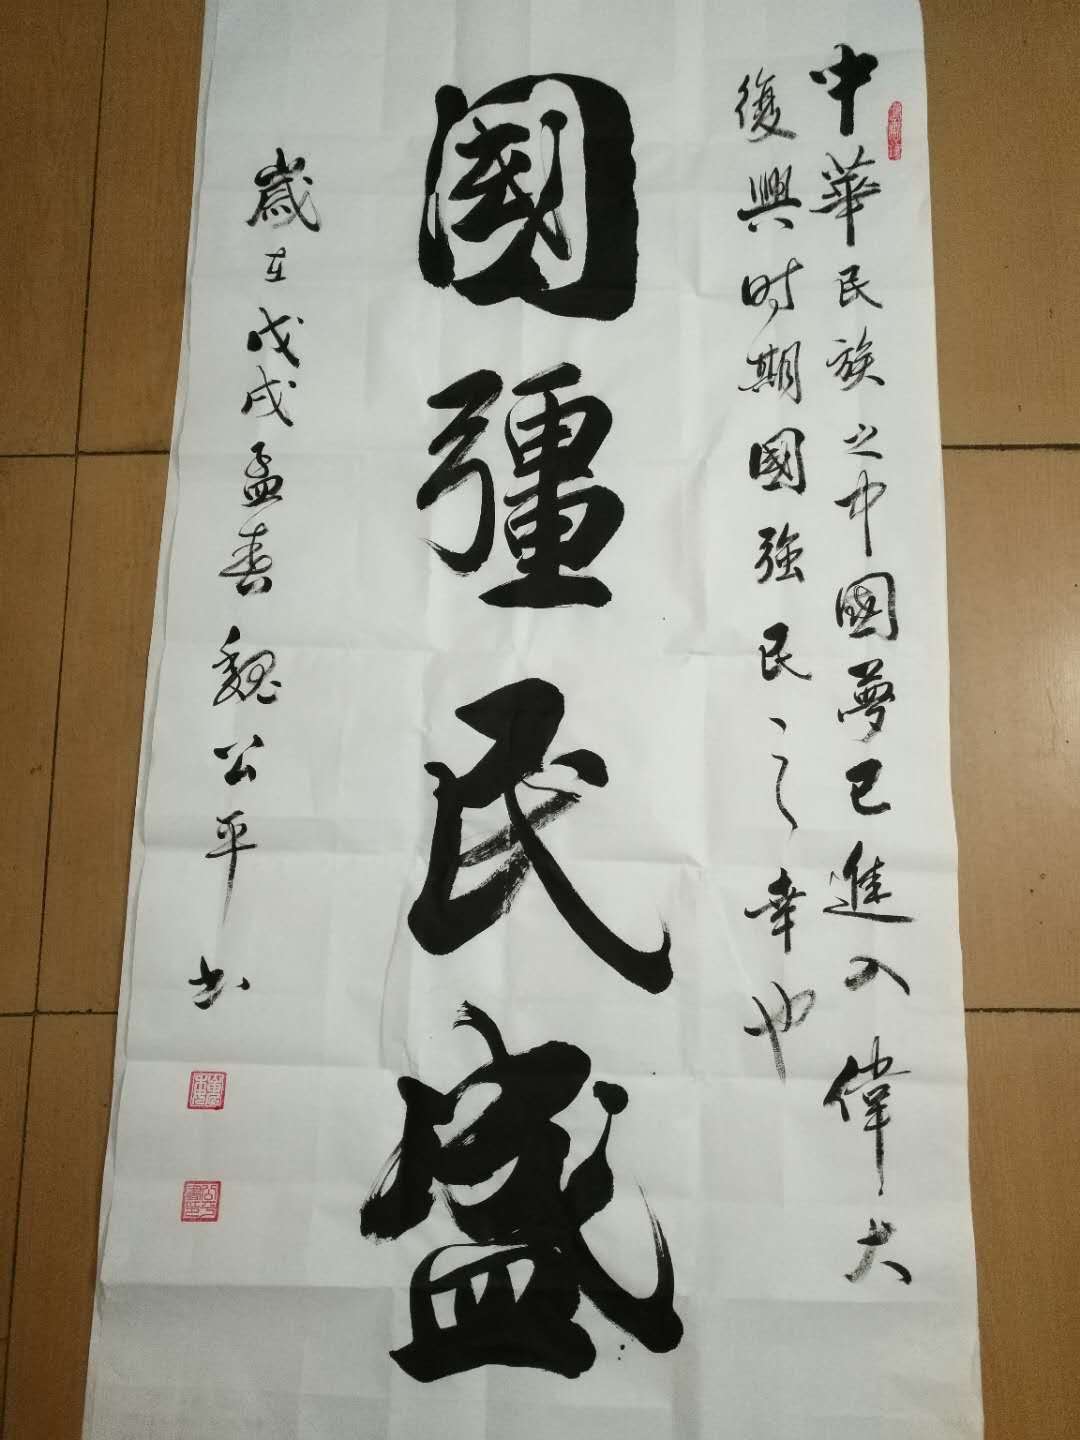 中華民族之中國夢已進入偉大
復興时期國強民之幸也
國彊民盛
歲在戊戌孟春魏公平书